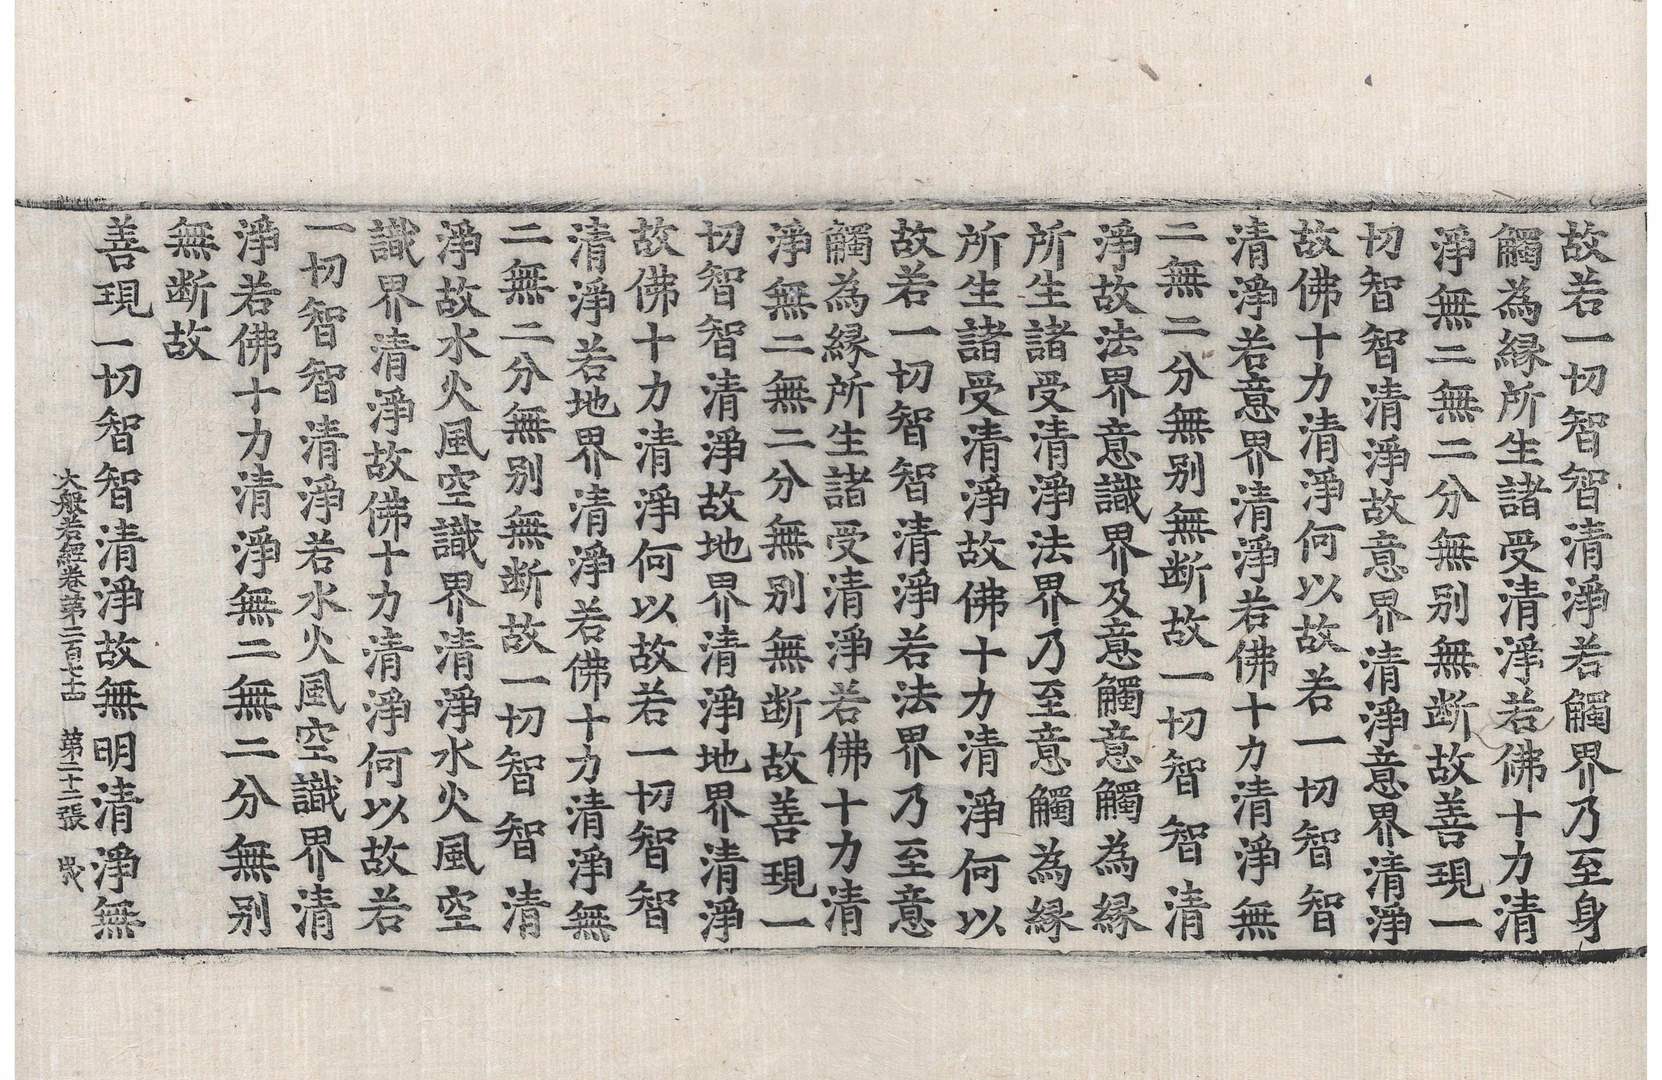 故若一切智智清淨若觸界乃至身
觸為縁所生諸受清淨若佛十力清
淨無二無二分無别無断故善現一
切智智清淨故意界清淨意界清淨
故佛十力清淨何以故若一切智智
清淨若意界清淨若佛十力清淨無
二無二分無别無断故一切智智清
淨故法界意識界及意觸意觸為縁
所生諸受清淨法界乃至意觸為縁
所生諸受清淨故佛十力清淨何以
故若一切智智清淨若法界乃至意
觸為縁所生諸受清淨若佛十力清
淨無二無二分無别無断故善現一
切智智清淨故地界清淨地界清淨
故佛十力清淨何以故若一切智智
清淨若地界清淨若佛十力清淨無
二無二分無别無断故一切智智清
淨故水火風空識界清淨水火風空
識界清淨故佛十力清淨何以故若
一切智智清淨若水火風空識界清
淨若佛十力清淨無二無二分無别
無断故
善現一切智智清淨故無明清淨無
大般若經卷第二百七十四 第二十二張 歲